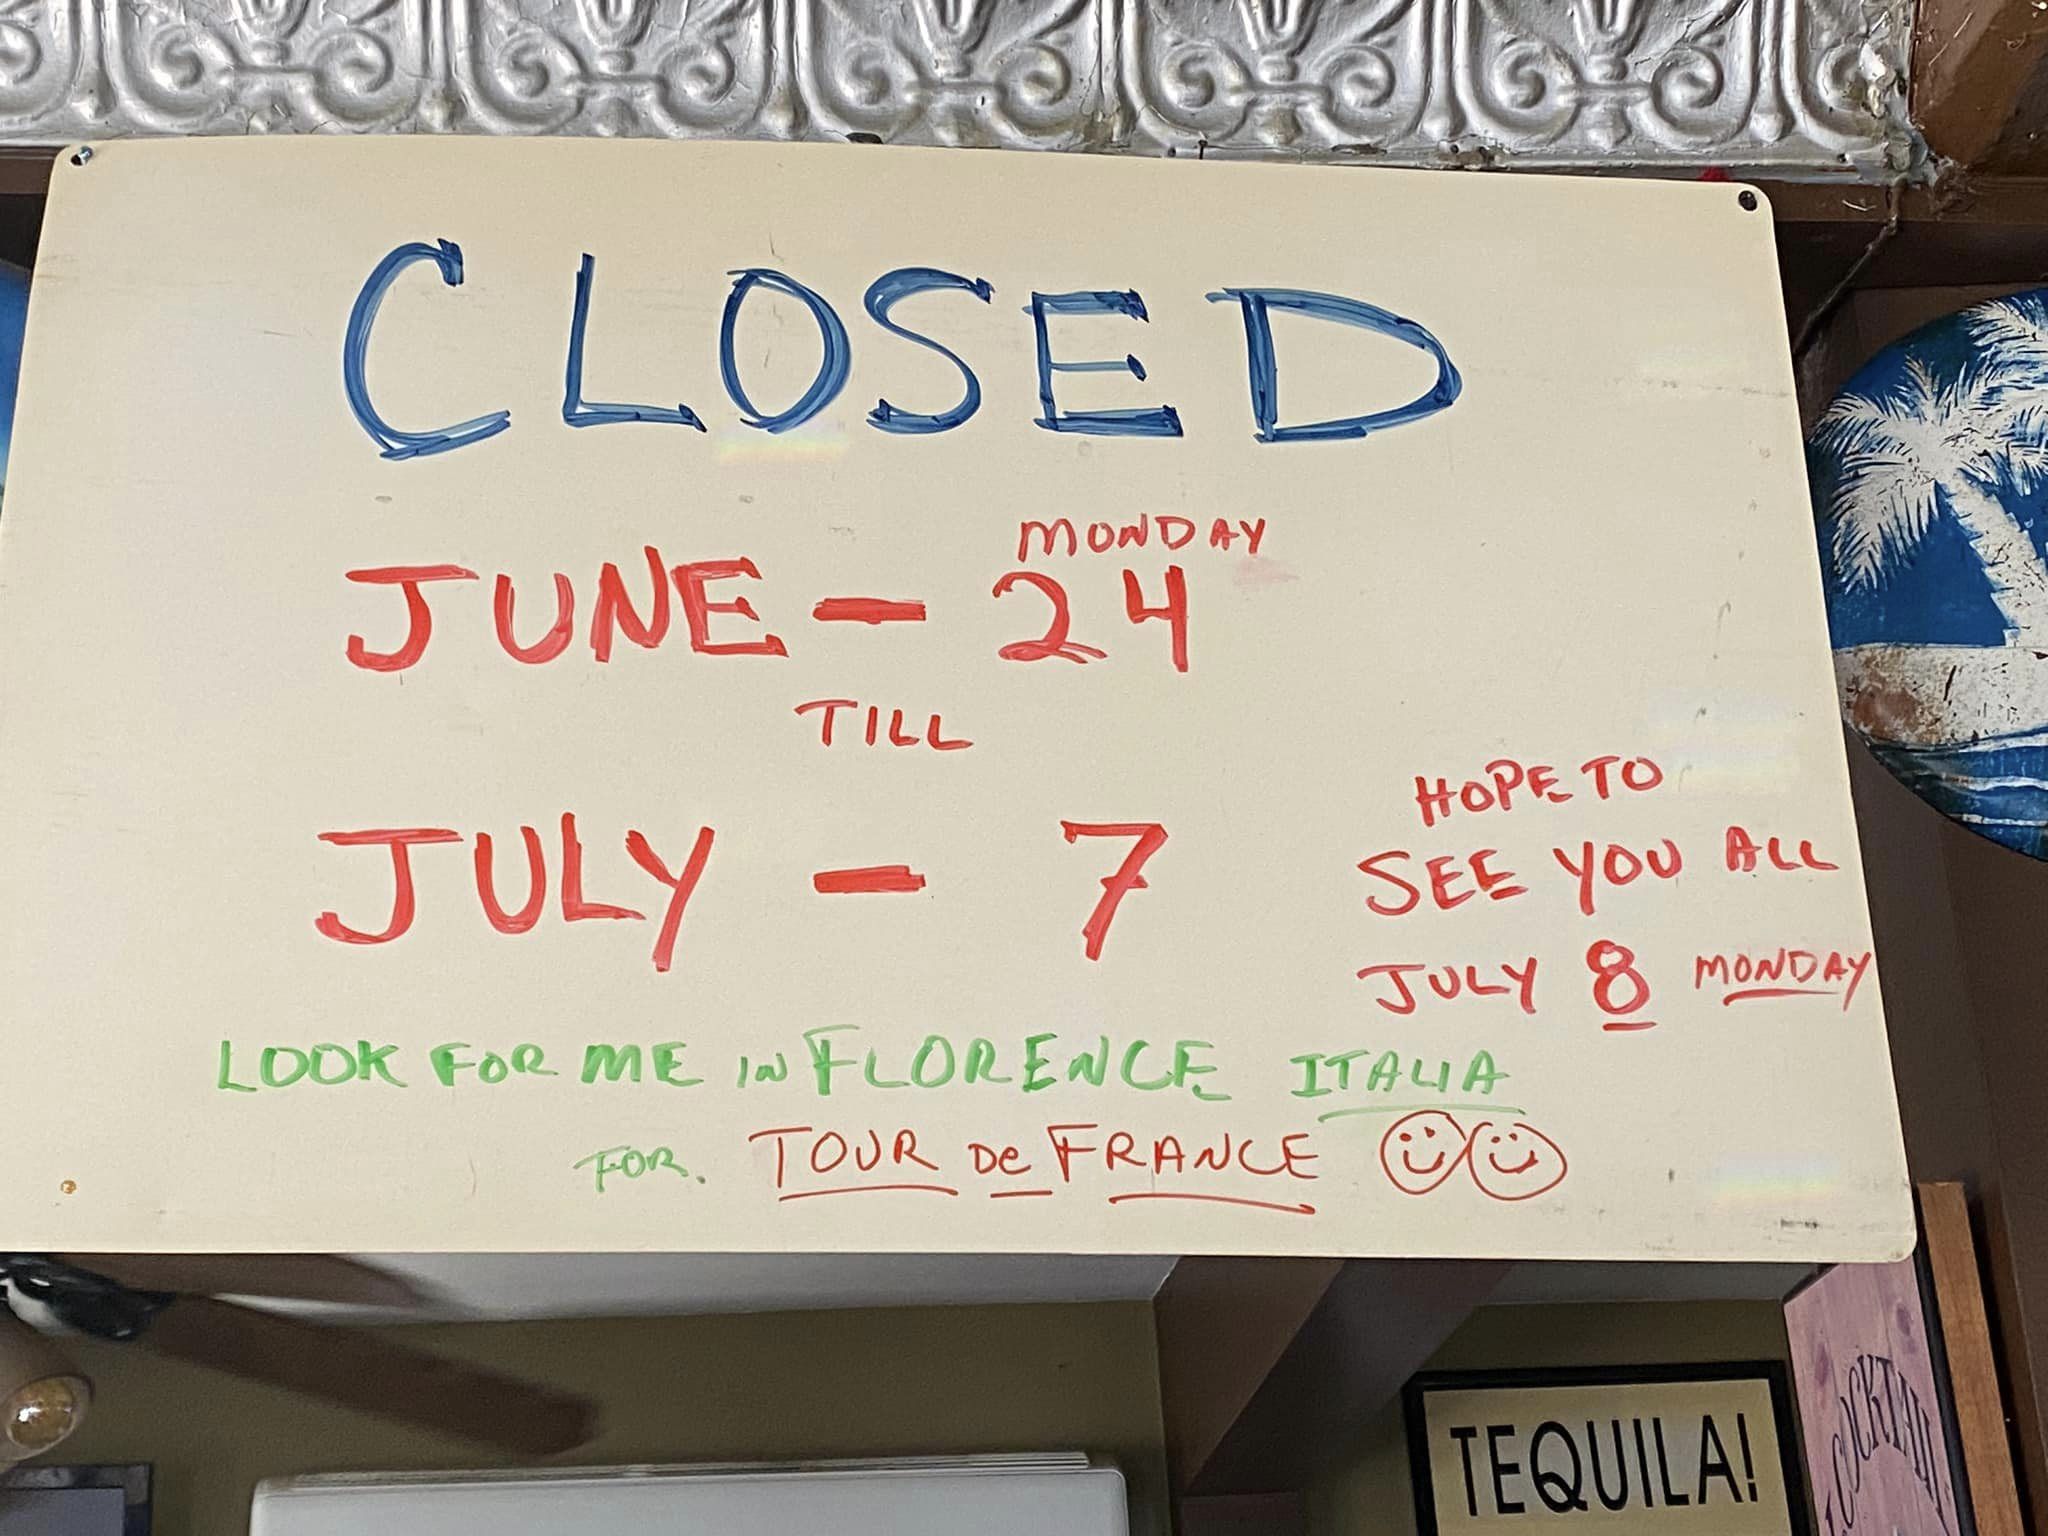 CLOSED
MONDAY
JUNE - 24
TILL
JULY - 7
HOPE TO
SEE YOU ALL
JULY 8 MONDAY
LOOK FOR ME IN FLORENCE ITALIA
FOR. TOUR De FRANCE
TEQUILA!
COCKTAIL